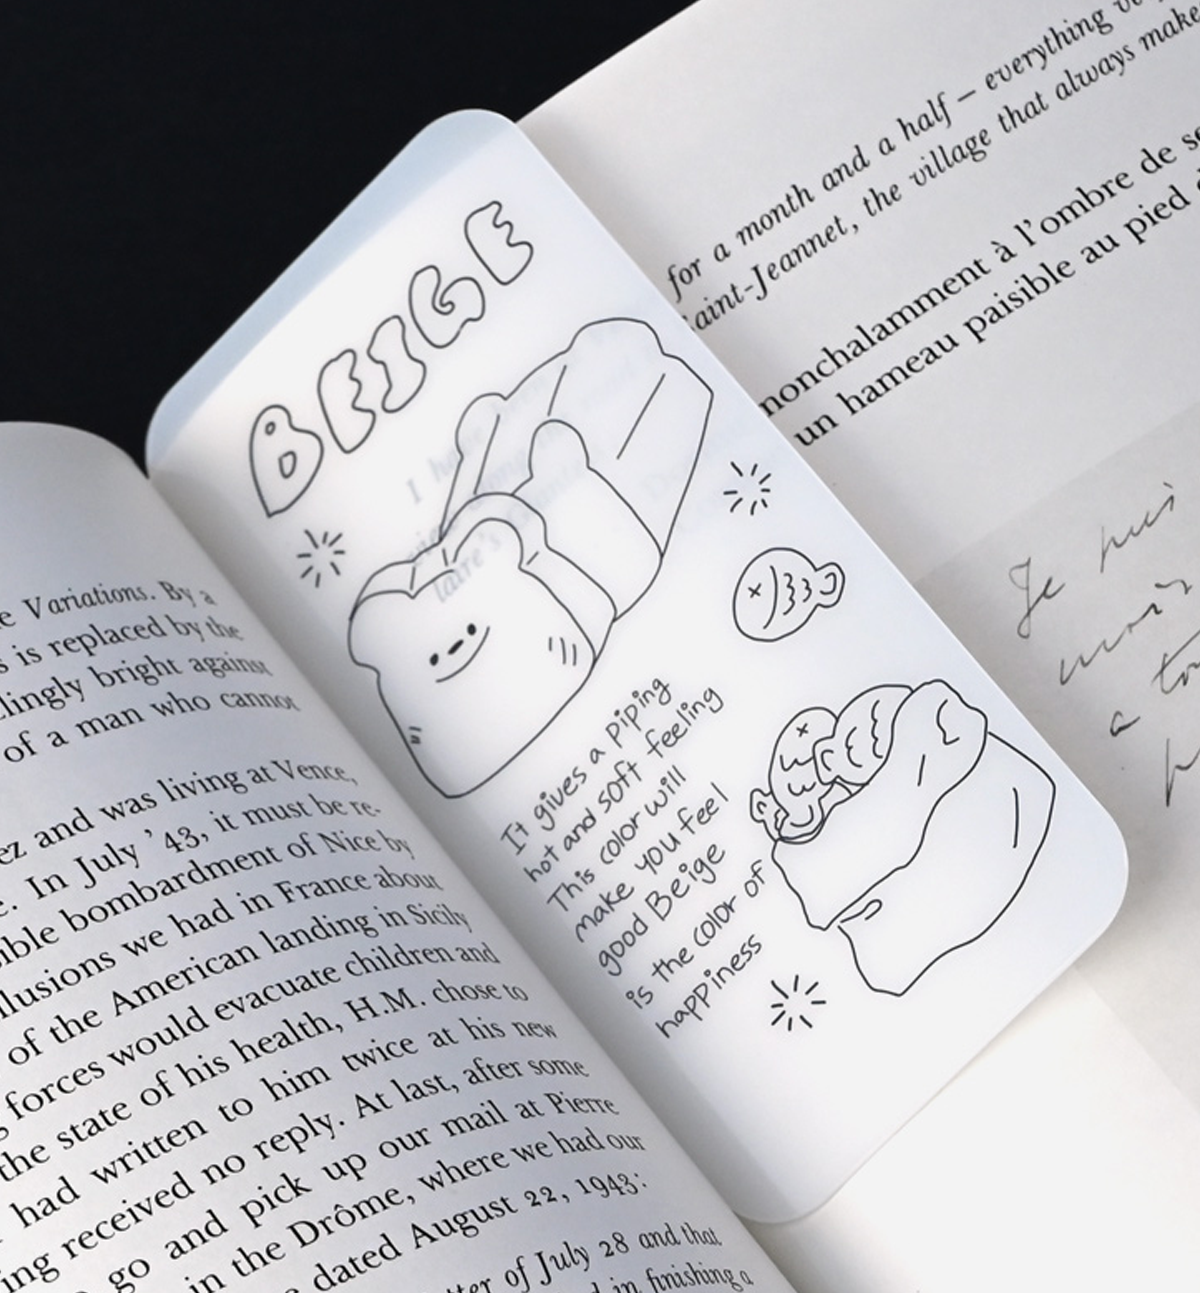 Variations. By a
is replaced by the
lingly bright against
of a man who cannot
ez and was living at Vence,
In July '43, it must be re-
ible bombardment of Nice by
llusions we had in France about
of the American landing in Sicily
forces would evacuate children and
the state of his health, H.M. chose to
had written to him twice at his new
ing received no reply. At last, after some
go and pick up our mail at Pierre
in the Drôme, where we had our
dated August 22, 1943:
tter of July 28 and that
d in finishing a
BEIGE
It gives a piping
hot and soft feeling
This color will
make you feel
good Beige
is the color of
happiness
for a month and a half – everything
aint-Jeannet, the village that always make
nonchalamment à l'ombre de se
un hameau paisible au pied d
Je puis
a